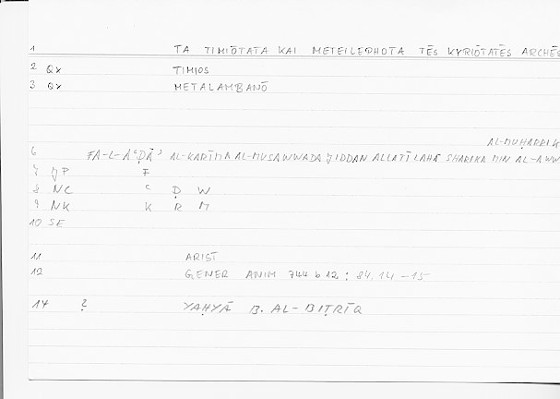 1 TA TIMIŌTATA KAI METEILĒPHOTA TĒS KYRIŌTATĒS ARCHĒS
2 QX TIMIOS
3 QX METALAMBANŌ
AL-MUḤARRIK
6 FA-L-AʿḌĀʾ AL-KARĪMA AL-MUSAWWADA ǦIDDAN ALLATĪ LAHĀ SHARIKA MIN AL-AWW
7 JP F
8 NC ʿ Ḍ W
9 NK K R M
10 SE
11 ARIST
12 GENER ANIM 744 b 12 : 84.14-15
17 ? YAḤYĀ B. AL-BIṬRĪQ